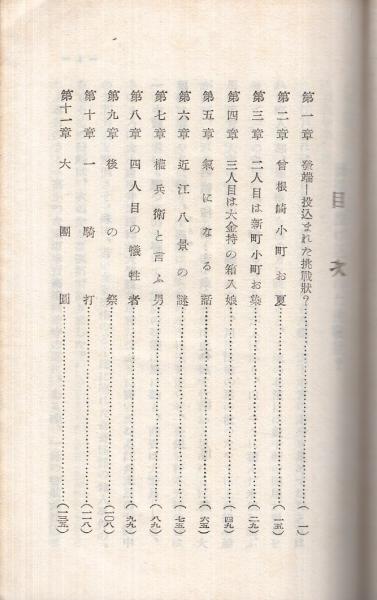 目次
第一章 發端—投込まれた挑戰狀?……(一)
第二章 曾根崎小町お夏……(一五)
第三章 二人目は新町小町お染……(二九)
第四章 三人目は大金持の箱入娘……(四九)
第五章 氣になる話……(六五)
第六章 近江八景の謎……(七五)
第七章 權兵衞と言ふ男……(八九)
第八章 四人目の犧牲者……(九九)
第九章 後の祭……(一〇八)
第十章 一騎打……(一一八)
第十一章 大團圓……(一三五)